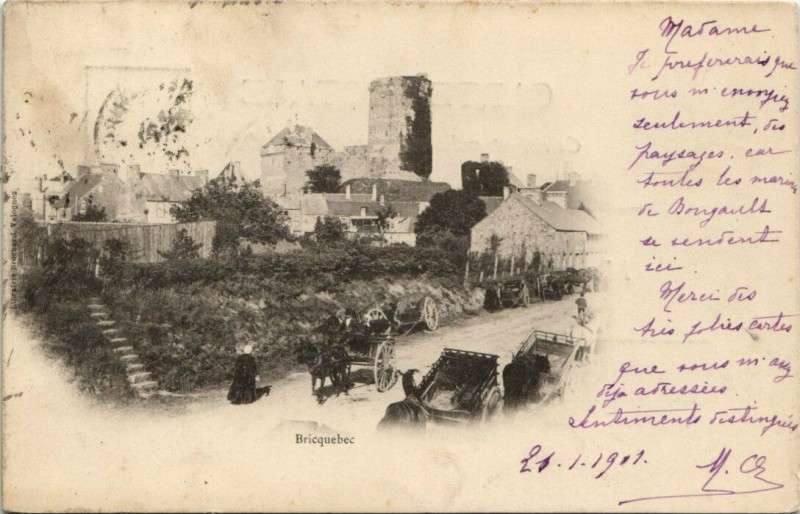 Madame.
Je prefererais que
vous m'envoyiez
seulement, des
paysages. car
toutes les
de Bougault
se vendent
ici.
Merci des
très jolies cartes
que vous m'avez
déja adressées.
Sentiments distingués
21.1.1901.
Bricquebec